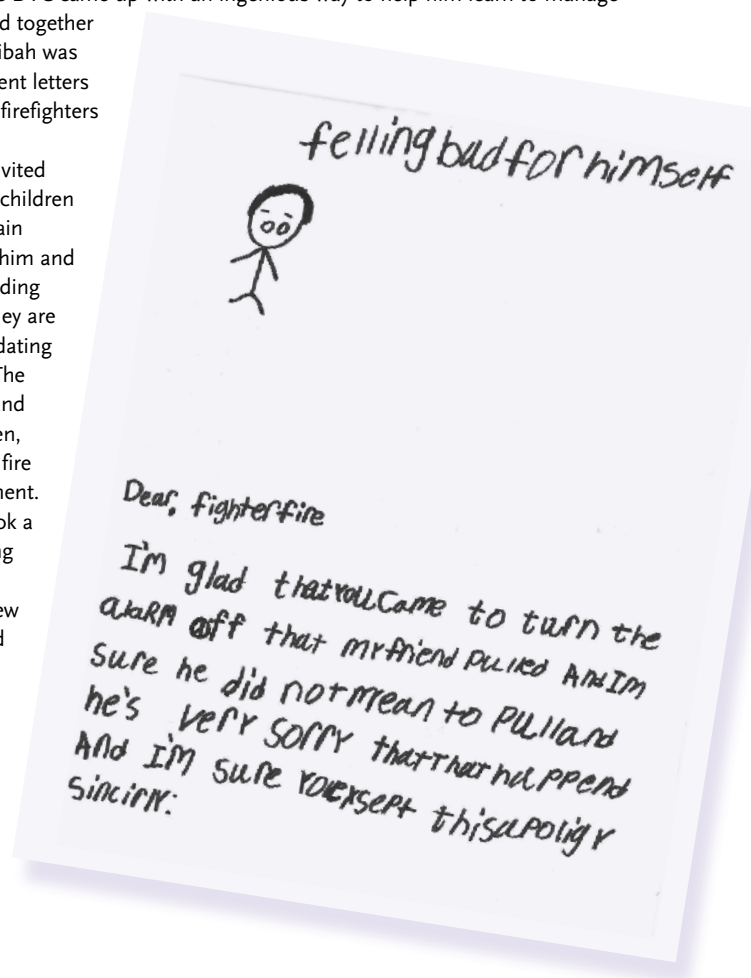 came up with an ingenious way to help him learn to manage
d together
ibah was
ent letters
firefighters
vited
children
ain
him and
ding
ey are
dating
The
nd
en,
fire
ment.
ok a
ng
ew
d
felling bad for himself
Dear, fighterfire
I'm glad that you came to turn the
alaRM off that my friend pulled And Im
sure he did not mean to pull and
he's very sorry that That happend
And I'm sure you exsept this apoligy
sincirly: